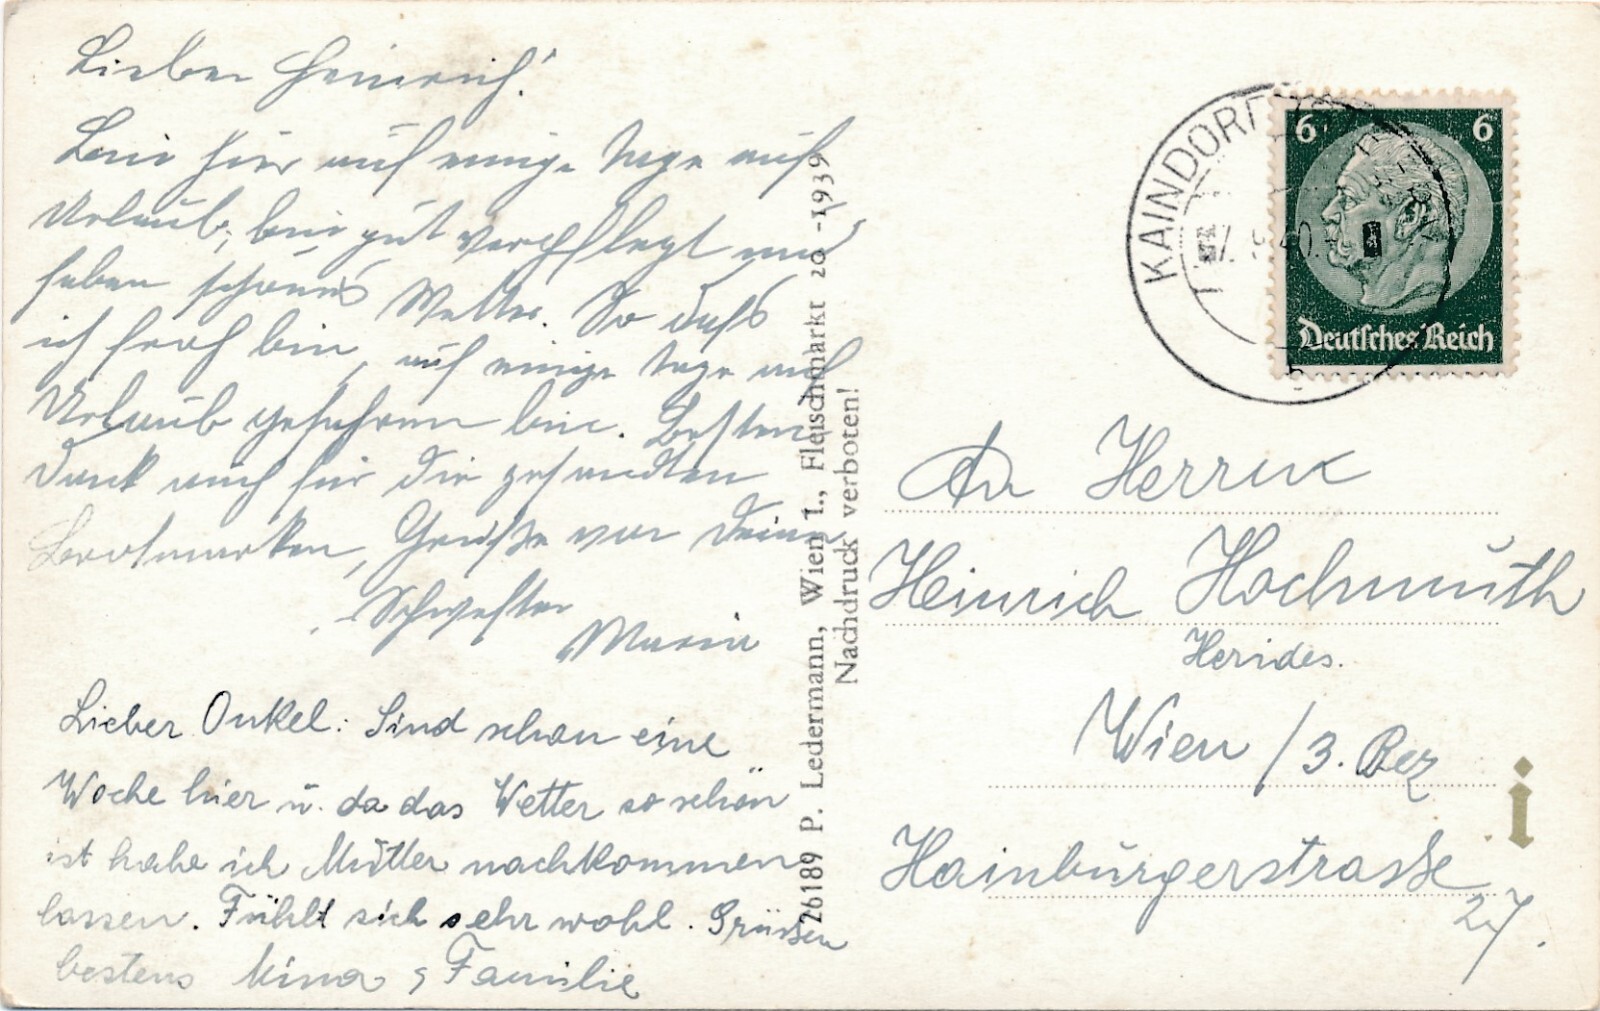 Lieber Heinrich!
Bin hier auf einige Tage auf
Urlaub, bin gut verpflegt und
haben schönes Wetter. So daß
ich froh bin, auf einige Tage auf
Urlaub gefahren bin. Besten
Dank auch für die gesandten
Brotmarken, Grüße von Deiner
Schwester
Maria
Lieber Onkel: Sind schon eine
Woche hier u. da das Wetter so schön
ist habe ich Mutter nachkommen
lassen. Fühlt sich sehr wohl. Grüssen
bestens Mina & Familie
26189 P. Ledermann, Wien I., Fleischmarkt 20 -1939
Nachdruck verboten!
KAINDORF
6 6
Deutsches Reich
An Herrn
Heinrich Hochmuth
Wien / 3. Bez
Hainburgerstrasse
27.
i